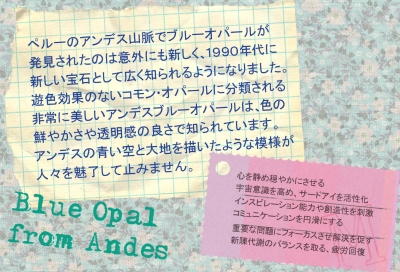 ペルーのアンデス山脈でブルーオパールが
発見されたのは意外にも新しく、1990年代に
新しい宝石として広く知られるようになりました。
遊色効果のないコモン・オパールに分類される
非常に美しいアンデスブルーオパールは、色の
鮮やかさや透明感の良さで知られています。
アンデスの青い空と大地を描いたような模様が
人々を魅了して止みません。
心を静め穏やかにさせる
宇宙意識を高め、サードアイを活性化
インスピレーション能力や創造性を刺激
コミュニケーションを円滑にする
重要な問題にフォーカスさせ解決を促す
新陳代謝のバランスを取る、疲労回復
Blue Opal
from Andes